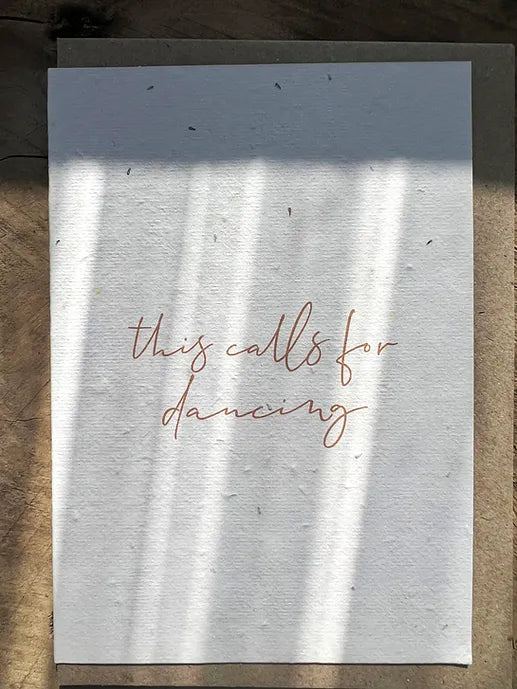 this calls for
dancing